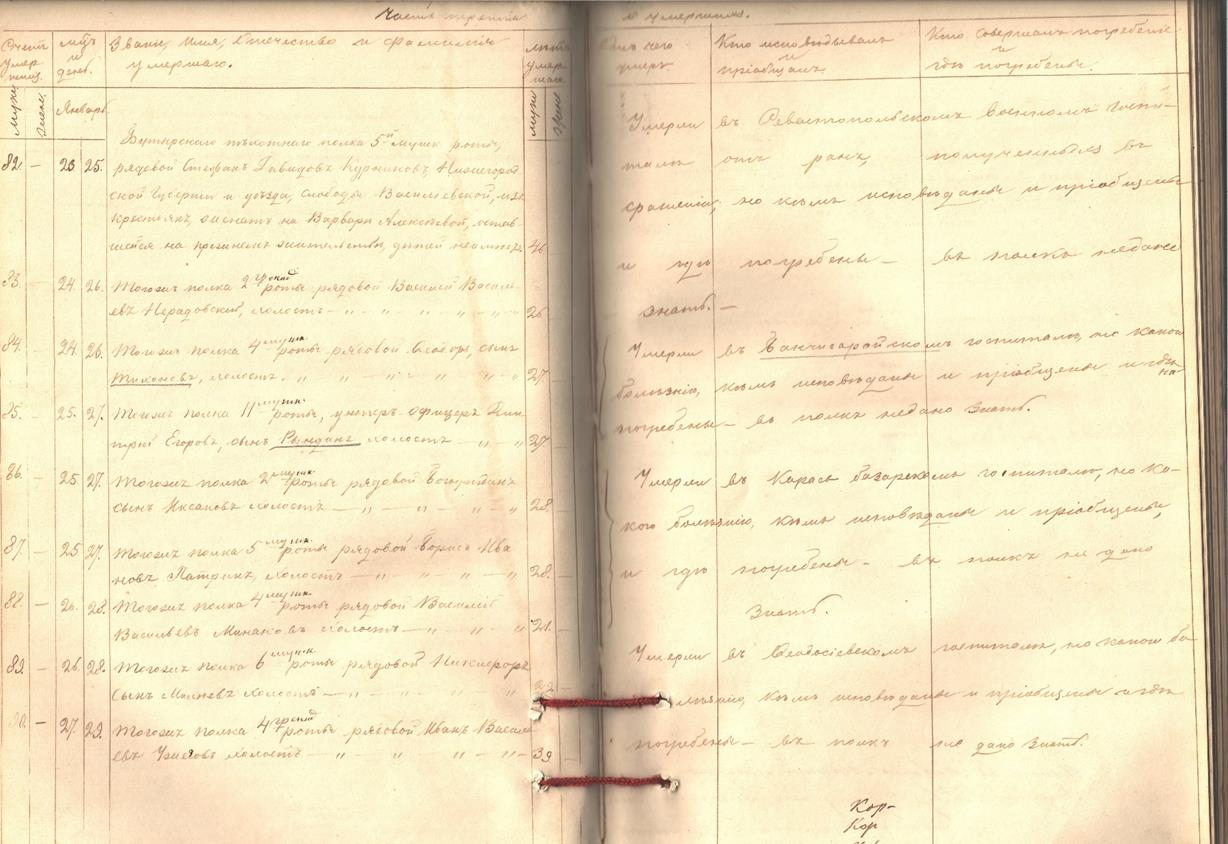 Часть третья
о умершихъ.
Счетъ умершихъ.
муж.
женс.
мѣць и день.
Званіе, имя, отечество и фамилія умершаго.
лѣта умершаго.
муж
женс
чего умеръ.
Кто исповѣдывалъ и пріобщалъ
Кто совершалъ погребеніе и гдѣ погребены.
Январь
Бутырскаго пѣхотнаго полка 5й мушк роты,
82. – 23 25. рядовой Стефанъ Давидовъ Нижегород
ской Губерніи и уѣзда, слободы Васильевской, изъ
крестьянъ, женатъ на Варварѣ Алексѣевой, остав
шейся на прежнемъ жительствѣ, дѣтей 46
83. – 24. 26. Тогожъ полка 2 роты рядовой Василій Василь
евъ Нерадовскій, холостъ – " " " " " 26 –
84. – 24. 26. Тогожъ полка 4 мушк. роты рядовой Ѳедоръ, сынъ
Тихоновъ, холостъ. " " " " " 27 –
85. – 25. 27. Тогожъ полка 11 мушк. роты, унтеръ-офицеръ Дми
трій Егоровъ, сынъ Рынданъ холостъ – " – " 27 –
86. – 25. 27. Тогожъ полка 2 мушк. роты рядовой
сынъ холостъ – " – " – " – " 28. –
87. – 25 27. Тогожъ полка 5 мушк. роты рядовой Борисъ Ива
новъ Патринъ, холостъ – " – " – " – " 28. –
88. – 26. 28. Тогожъ полка 4 мушк. роты рядовой Василій
Васильевъ Минаковъ холостъ – " " " 21. –
89. – 26. 28. Тогожъ полка 6 мушк. роты рядовой Никифоръ
сынъ холостъ – " – " – " – "
90. – 27. 29. Тогожъ полка 4 роты рядовой Иванъ Василь
евъ холостъ – " " " – " – 39
Умерли въ Севастопольскомъ военномъ госпи-
талѣ отъ ранъ, полученныхъ въ
сраженіи; но кѣмъ исповѣданы и пріобщены
и гдѣ погребены – въ полкъ недано
знать. –
Умерли въ Бакчисарайскомъ госпиталѣ, но какою
болѣзнію, кѣмъ исповѣданы и пріобщены и гдѣ
погребены – въ полкъ недано знать.
Умерли въ Карасъ базарскомъ госпиталѣ, но ка-
кою болѣзнію, кѣмъ исповѣданы и пріобщены,
и гдѣ погребены – въ полкъ не дано
знать.
Умерли въ Ѳеодосіевскомъ госпиталѣ, но какою бо
лѣзнію, кѣмъ исповѣданы и пріобщены и гдѣ
погребены – въ полкъ не дано знать.
Кор-
Кор